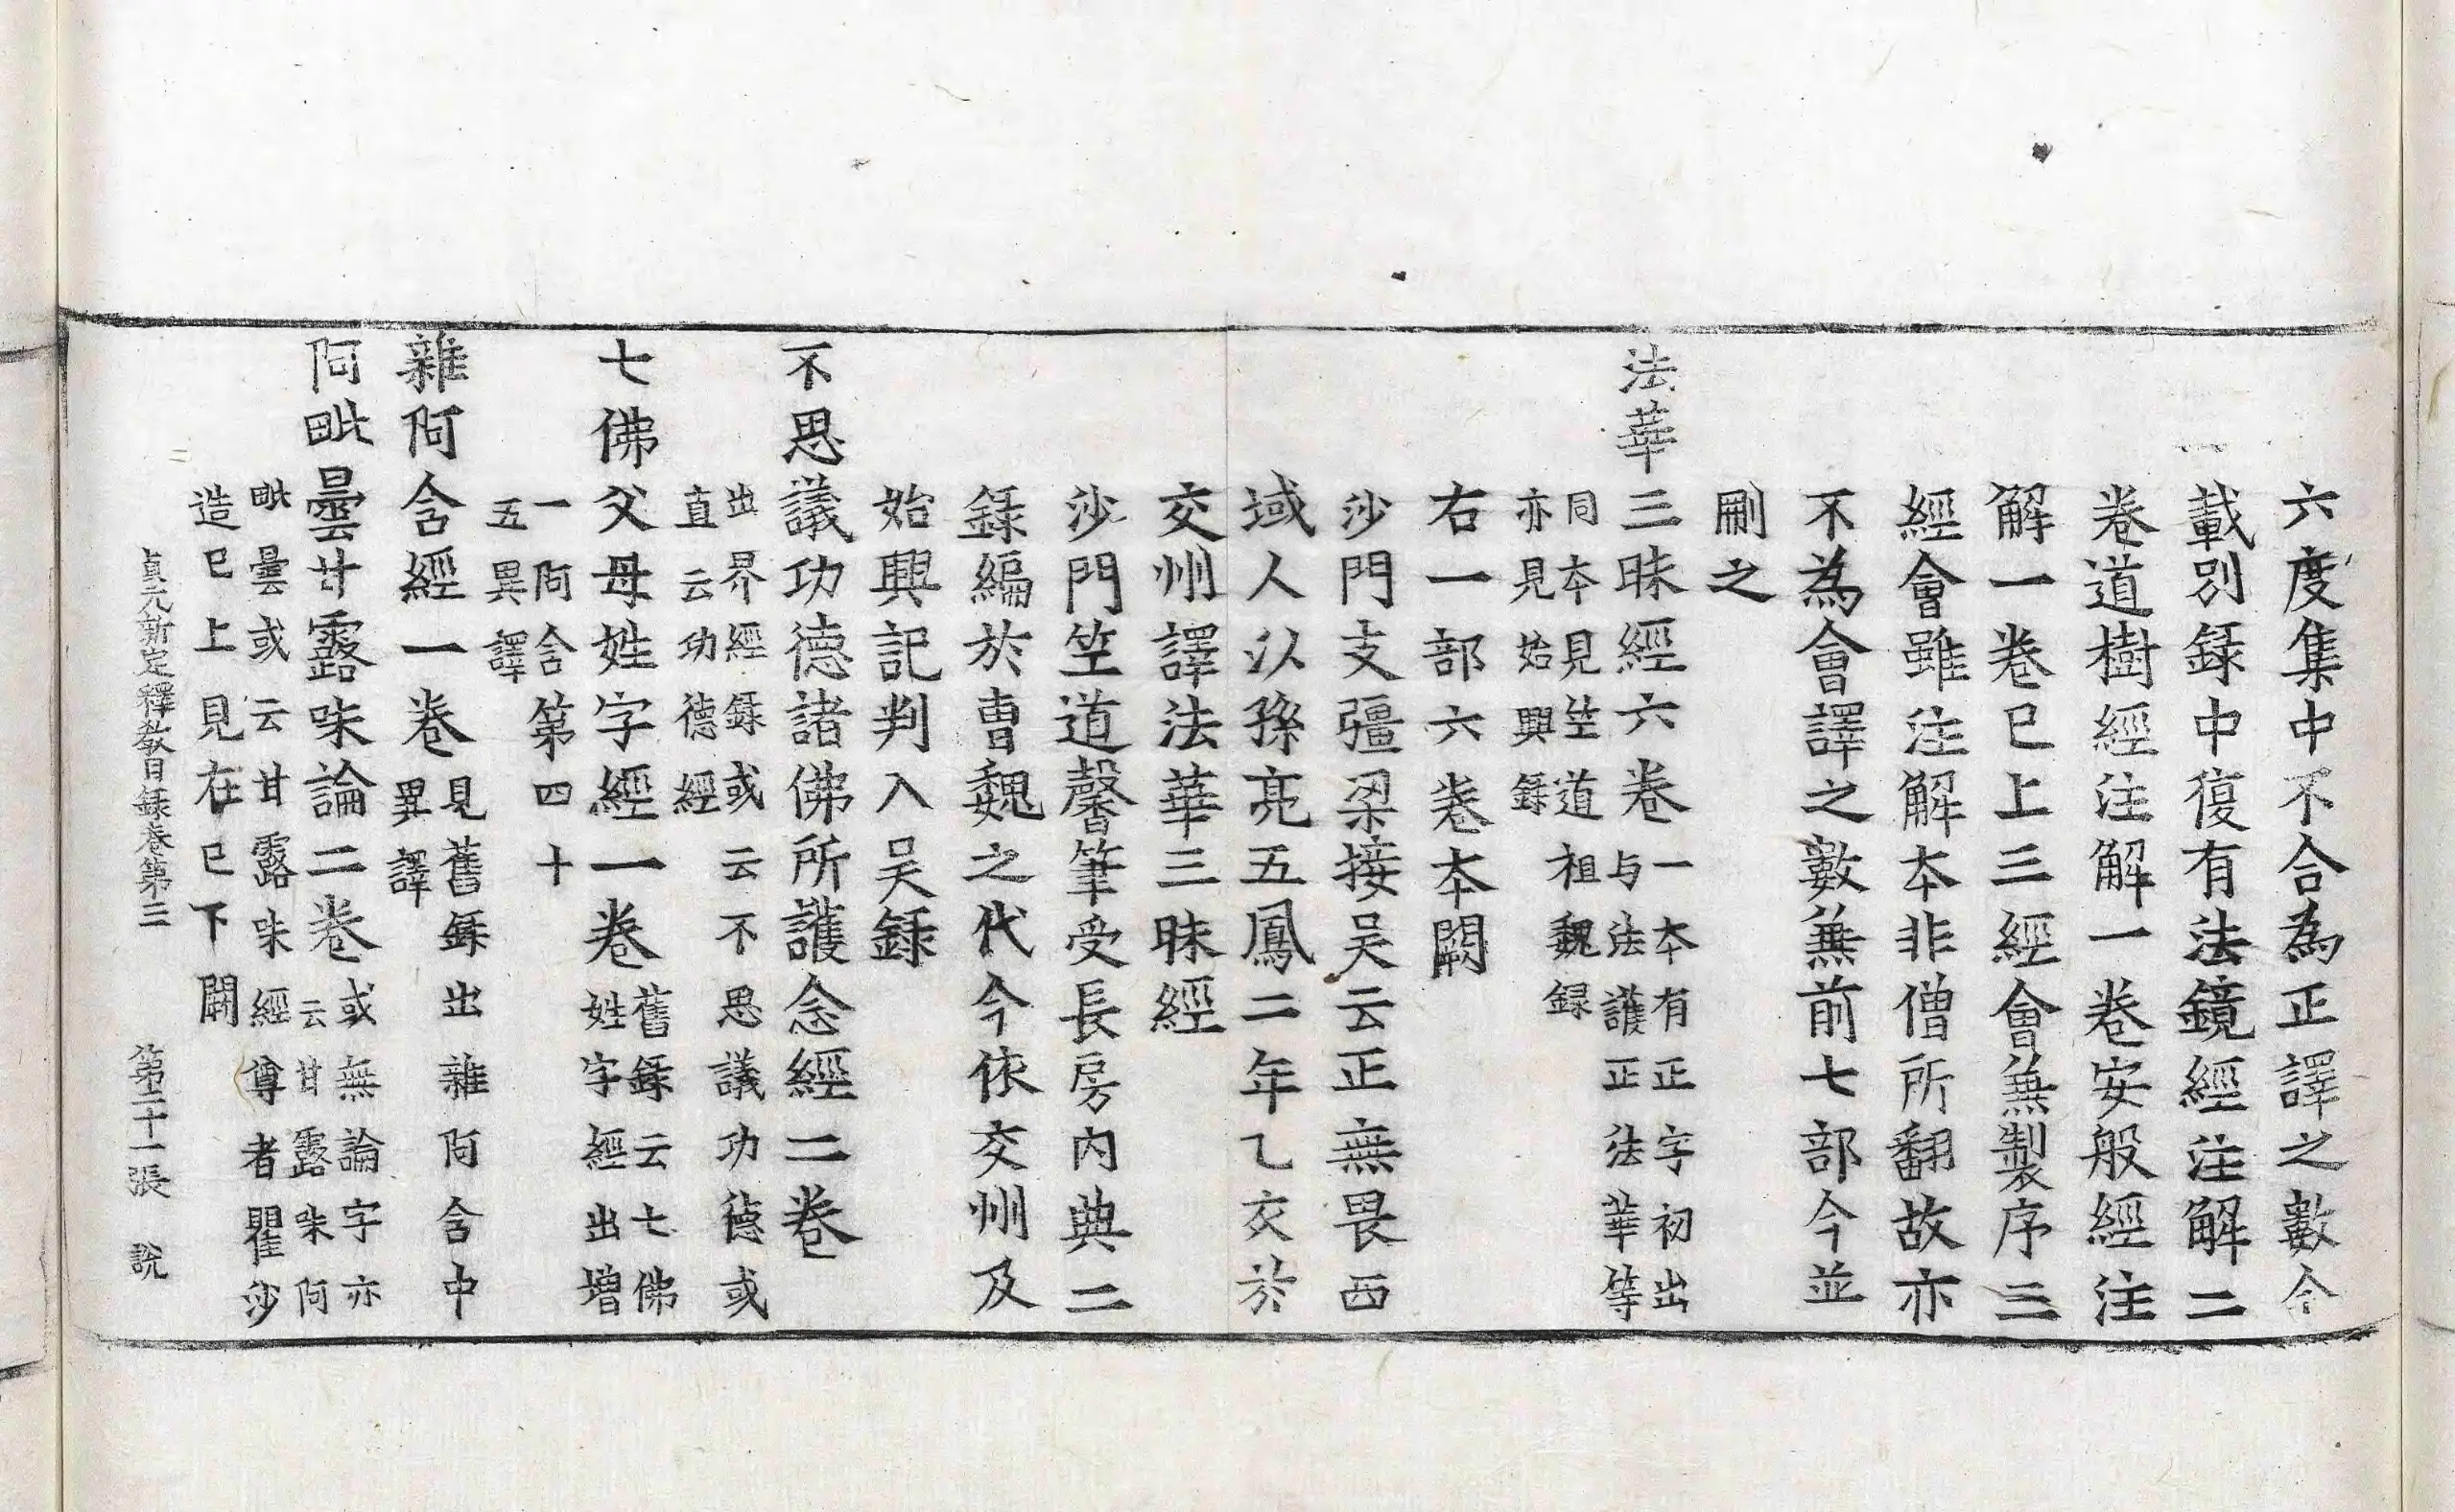 六度集中不合為正譯之數今
載別録中復有法鏡經注解二
卷道樹經注解一卷安般經注
解一卷已上三經會兼製序三
經會雖注解本非僧所翻故亦
不為會譯之數兼前七部今並
刪之
法華三昧經六卷
一本有正字初出
与法護正法華等
同本見竺道祖魏録
亦見始興録
右一部六卷本闕
沙門支彊梁接吴云正無畏西
域人以孫亮五鳳二年乙亥於
交州譯法華三昧經
沙門竺道馨筆受長房內典二
録編於曹魏之代今依交州及
始興記判入吴録
不思議功德諸佛所護念經二卷
出界經録或云不思議功德或
直云功德經
七佛父母姓字經一卷
舊録云七佛
姓字經出增
一阿含第四十
五異譯
雜阿含經一卷
見舊録出雜阿含中
異譯
阿毗曇甘露味論二卷
或無論字亦
云甘露味阿
毗曇或云甘露味經尊者瞿沙
造已上見在已下闕
貞元新定釋教目録卷第三　第二十一張　說